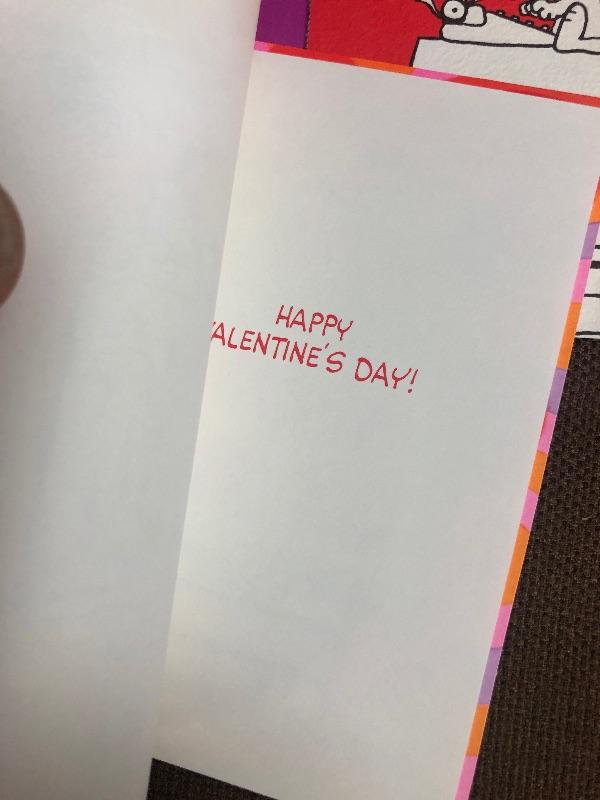 HAPPY
VALENTINE'S DAY!